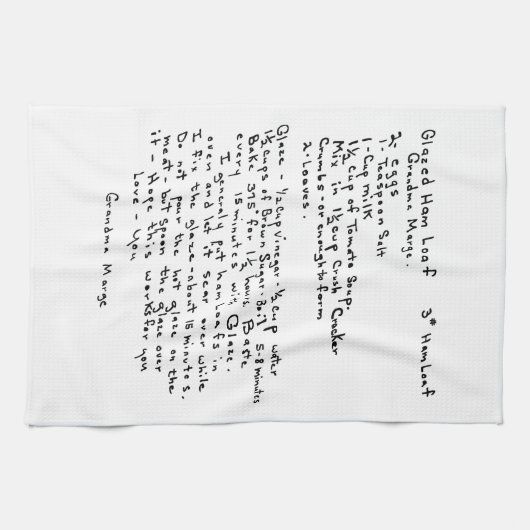 Glazed Ham Loaf 3# Ham Loaf
Grandma Marge.
2- eggs
1- Teaspoon Salt
1- Cup milk
1½ cup of Tomato Soup.
Mix in 1½ cup Crush Cracker
Crumbs - or enough to form
2. Loaves.
Glaze - ½ cup vinegar - ½ cup water
1½ cups of Brown Sugar - Boil 5-8 minutes
Bake 375 for 1½ hours. Baste
every 15 minutes with Glaze.
I generaly put ham loafs in
oven and let it sear over while
I fix the glaze - about 15 minutes.
Do not pour the hot glaze on the
meat - but spoon the glaze over
it - Hope this works for you
Love - You
Grandma Marge